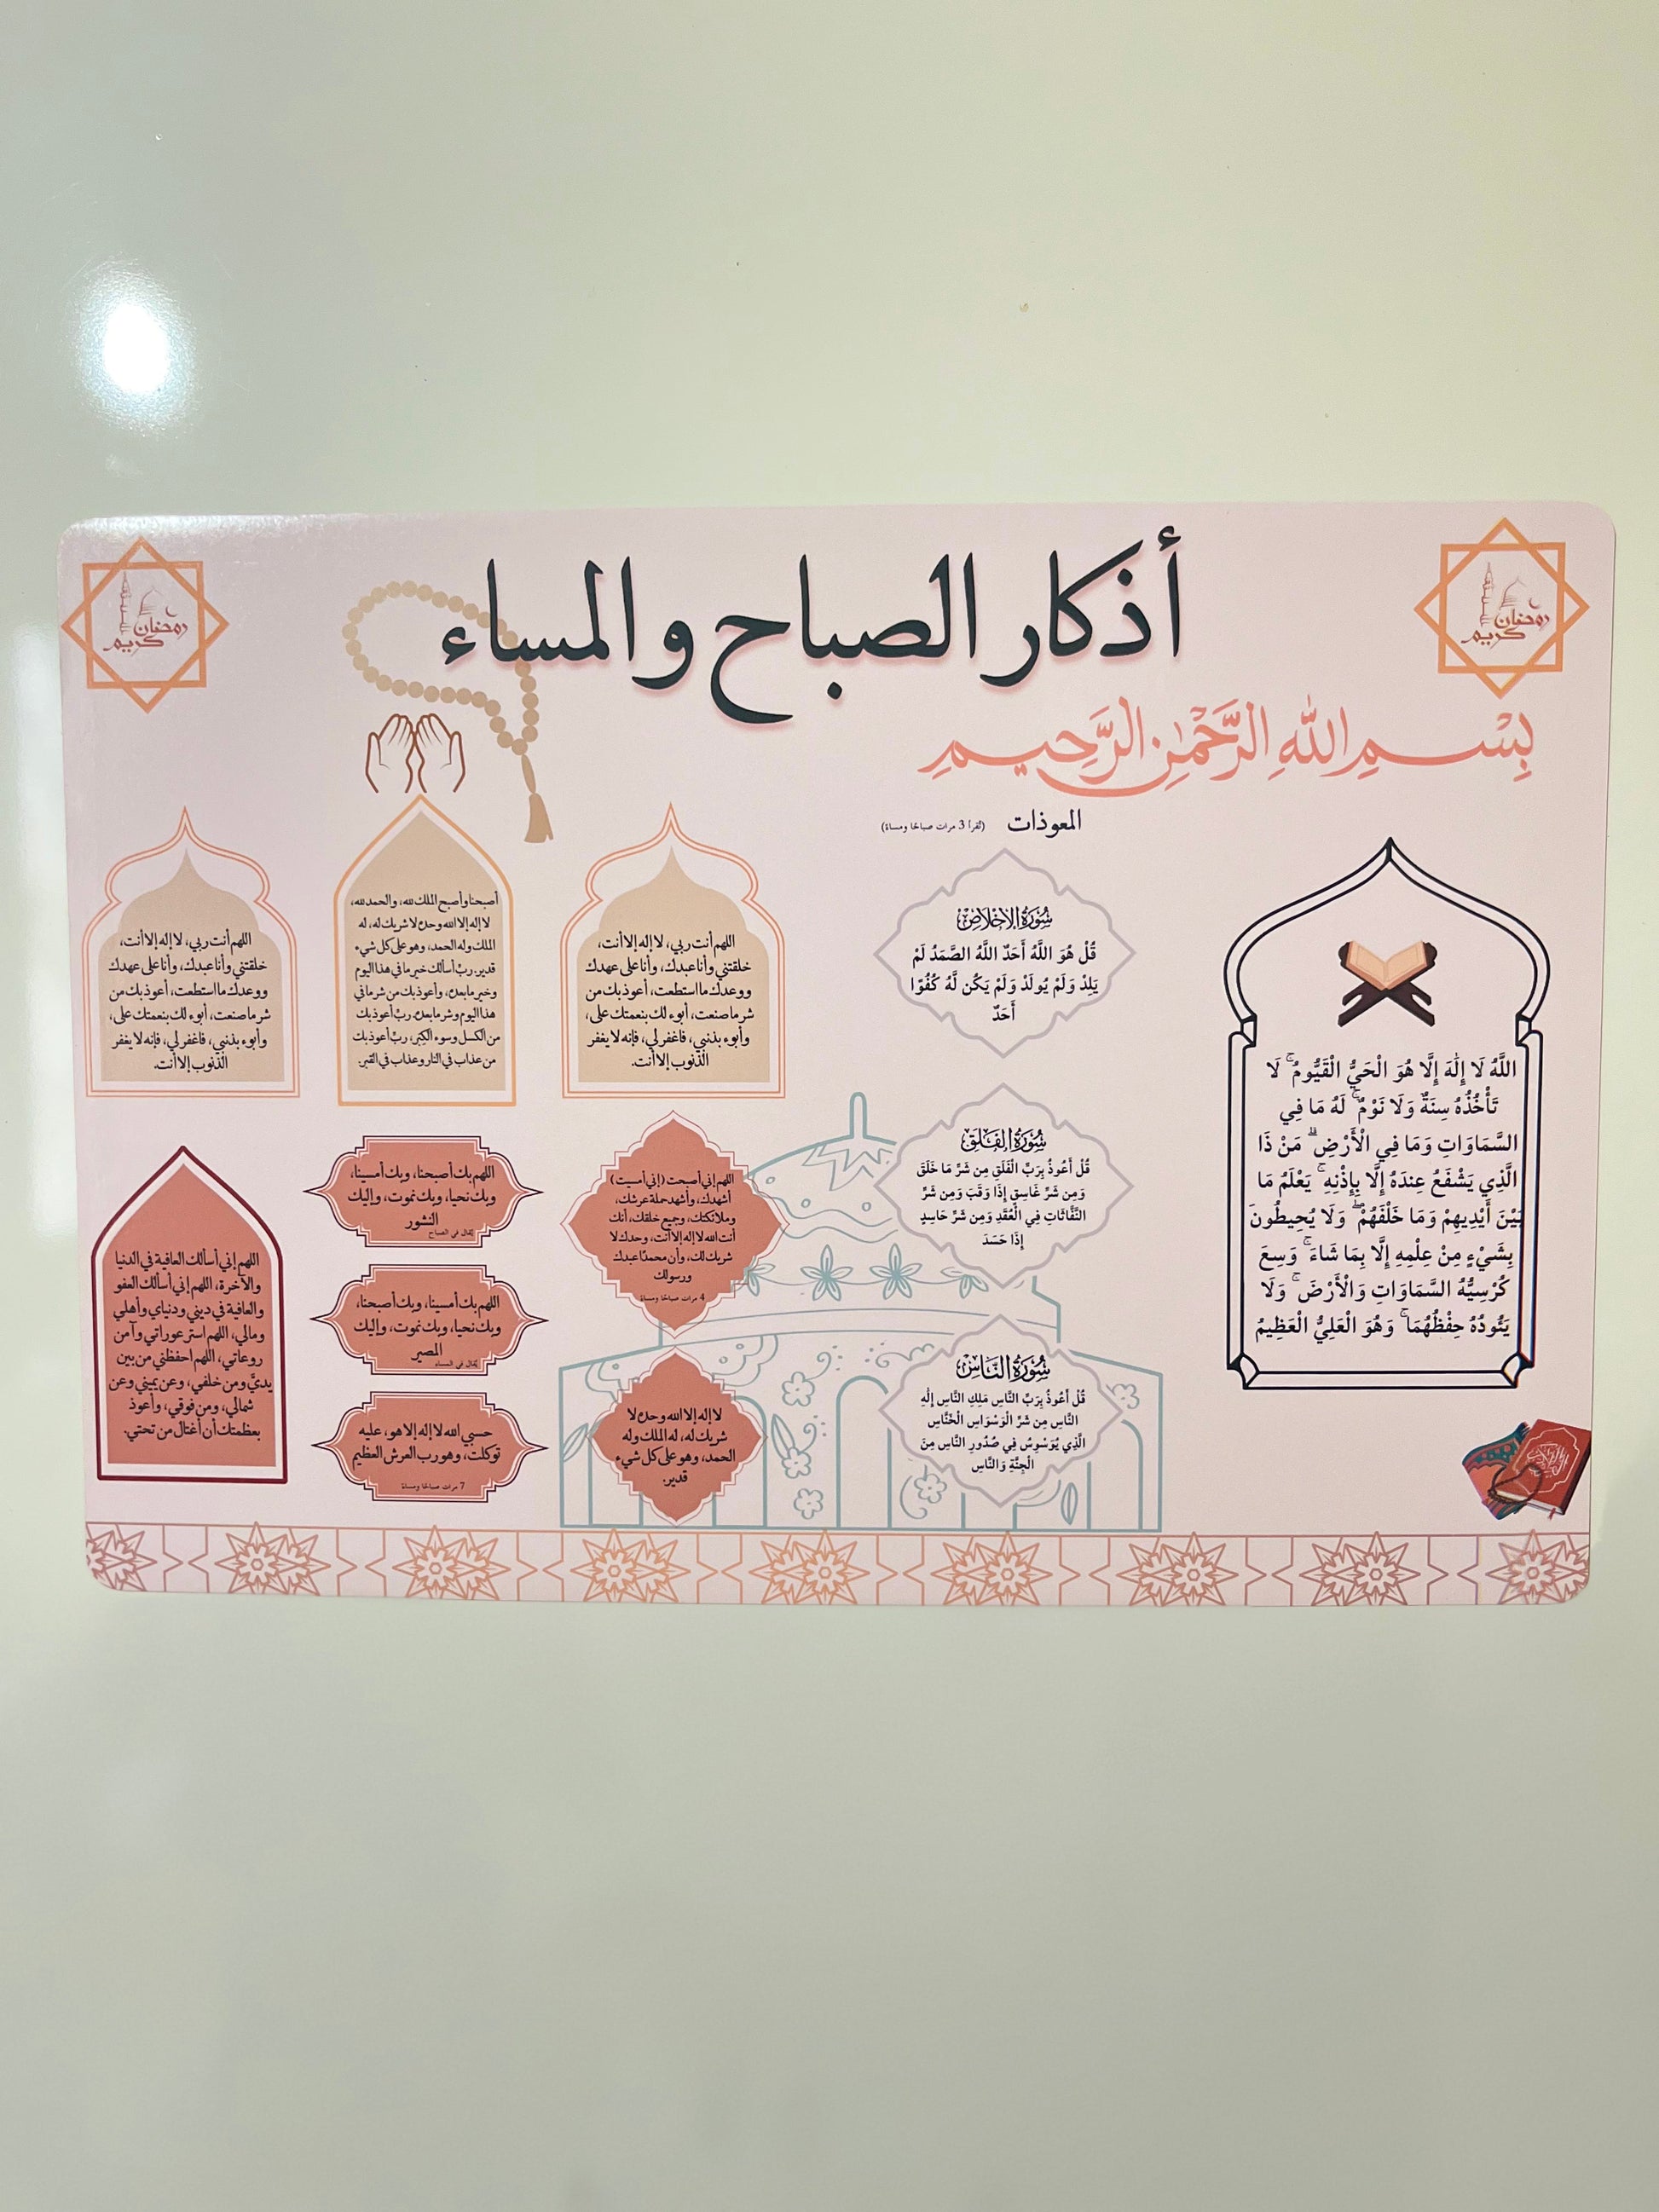 أذكار الصباح والمساء
رمضان
كريم
رمضان
كريم
بِسْمِ اللَّهِ الرَّحْمَٰنِ الرَّحِيمِ
اللَّهُ لَا إِلَٰهَ إِلَّا هُوَ الْحَيُّ الْقَيُّومُ ۚ لَا
تَأْخُذُهُ سِنَةٌ وَلَا نَوْمٌ ۚ لَهُ مَا فِي
السَّمَاوَاتِ وَمَا فِي الْأَرْضِ ۗ مَنْ ذَا
الَّذِي يَشْفَعُ عِندَهُ إِلَّا بِإِذْنِهِ ۚ يَعْلَمُ مَا
بَيْنَ أَيْدِيهِمْ وَمَا خَلْفَهُمْ ۖ وَلَا يُحِيطُونَ
بِشَيْءٍ مِنْ عِلْمِهِ إِلَّا بِمَا شَاءَ ۚ وَسِعَ
كُرْسِيُّهُ السَّمَاوَاتِ وَالْأَرْضَ ۚ وَلَا
يَئُودُهُ حِفْظُهُمَا ۚ وَهُوَ الْعَلِيُّ الْعَظِيمُ
المعوذات (تُقرأ 3 مرات صباحًا ومساءً)
سُورَةُ الإِخْلَاصِ
قُلْ هُوَ اللَّهُ أَحَدٌ اللَّهُ الصَّمَدُ لَمْ
يَلِدْ وَلَمْ يُولَدْ وَلَمْ يَكُن لَّهُ كُفُوًا
أَحَدٌ
سُورَةُ الفَلَقِ
قُلْ أَعُوذُ بِرَبِّ الْفَلَقِ مِن شَرِّ مَا خَلَقَ
وَمِن شَرِّ غَاسِقٍ إِذَا وَقَبَ وَمِن شَرِّ
النَّفَّاثَاتِ فِي الْعُقَدِ وَمِن شَرِّ حَاسِدٍ
إِذَا حَسَدَ
سُورَةُ النَّاسِ
قُلْ أَعُوذُ بِرَبِّ النَّاسِ مَلِكِ النَّاسِ إِلَٰهِ
النَّاسِ مِن شَرِّ الْوَسْوَاسِ الْخَنَّاسِ
الَّذِي يُوَسْوِسُ فِي صُدُورِ النَّاسِ مِنَ
الْجِنَّةِ وَالنَّاسِ
اللهم أنت ربي، لا إله إلا أنت،
خلقتني وأنا عبدك، وأنا على عهدك
ووعدك ما استطعت، أعوذ بك من
شر ما صنعت، أبوء لك بنعمتك علي،
وأبوء بذنبي، فاغفر لي، فإنه لا يغفر
الذنوب إلا أنت.
أصبحنا وأصبح الملك لله، والحمد لله،
لا إله إلا الله وحده لا شريك له، له
الملك وله الحمد، وهو على كل شيء
قدير. ربّ أسألك خير ما في هذا اليوم
وخير ما بعده، وأعوذ بك من شر ما في
هذا اليوم وشر ما بعده. ربّ أعوذ بك
من الكسل وسوء الكِبَر، ربّ أعوذ بك
من عذاب في النار وعذاب في القبر.
اللهم أنت ربي، لا إله إلا أنت،
خلقتني وأنا عبدك، وأنا على عهدك
ووعدك ما استطعت، أعوذ بك من
شر ما صنعت، أبوء لك بنعمتك علي،
وأبوء بذنبي، فاغفر لي، فإنه لا يغفر
الذنوب إلا أنت.
اللهم إني أصبحت (إني أمسيت)
أشهدك، وأشهد حملة عرشك،
وملائكتك، وجميع خلقك، أنك
أنت الله لا إله إلا أنت، وحدك لا
شريك لك، وأن محمدًا عبدك
ورسولك
4 مرات صباحًا ومساءً
لا إله إلا الله وحده لا
شريك له، له الملك وله
الحمد، وهو على كل شيء
قدير.
اللهم بك أصبحنا، وبك أمسينا،
وبك نحيا، وبك نموت، وإليك
النشور
يُقال في الصباح
اللهم بك أمسينا، وبك أصبحنا،
وبك نحيا، وبك نموت، وإليك
المصير
يُقال في المساء
حسبي الله لا إله إلا هو، عليه
توكلت، وهو رب العرش العظيم
7 مرات صباحًا ومساءً
اللهم إني أسألك العافية في الدنيا
والآخرة، اللهم إني أسألك العفو
والعافية في ديني ودنياي وأهلي
ومالي، اللهم استر عوراتي وآمن
روعاتي، اللهم احفظني من بين
يديّ ومن خلفي، وعن يميني وعن
شمالي، ومن فوقي، وأعوذ
بعظمتك أن أغتال من تحتي.